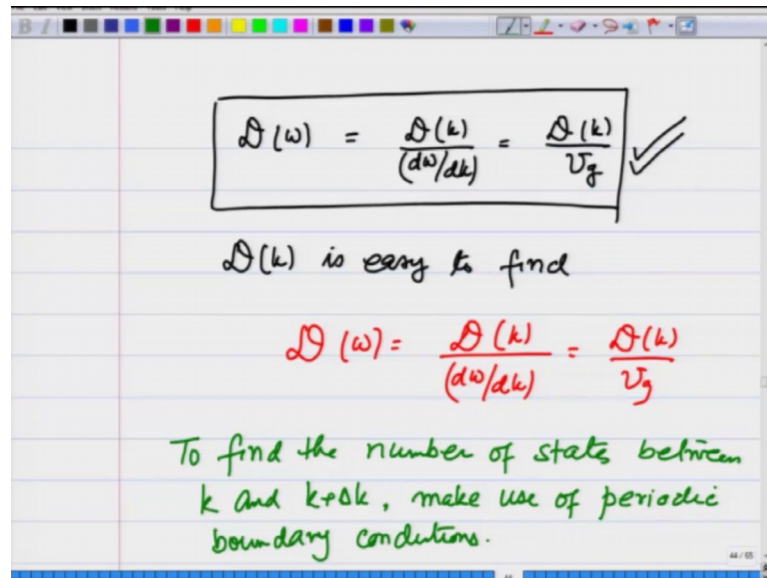 D(ω) = D(k)/(dω/dk) = D(k)/v_g
D(k) is easy to find
D(ω) = D(k)/(dω/dk) = D(k)/v_g
To find the number of states between
k and k+Δk, make use of periodic
boundary conditions.
44 / 55